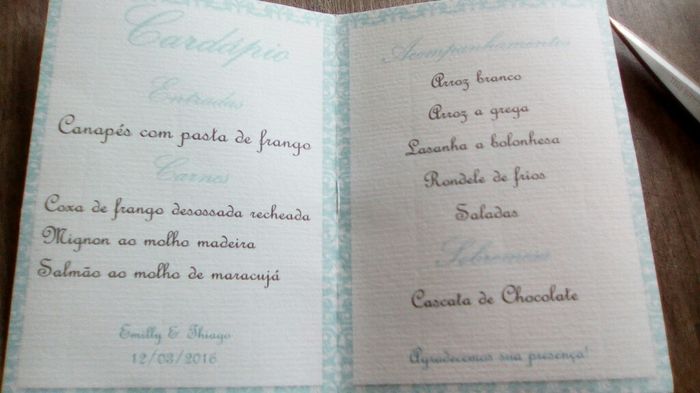 Cardápio
Entradas
Canapés com pasta de frango
Carnes
Coxa de frango desossada recheada
Mignon ao molho madeira
Salmão ao molho de maracujá
Emilly & Thiago
12/03/2016
Acompanhamentos
Arroz branco
Arroz a grega
Lasanha a bolonhesa
Rondele de frios
Saladas
Sobremesa
Cascata de Chocolate
Agradecemos sua presença!